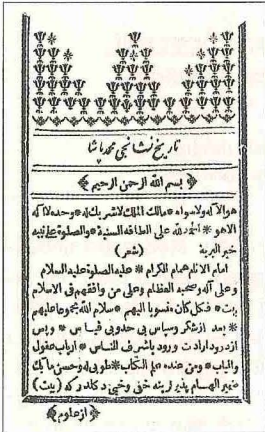 تاريخ نشانجى محمد پاشا
بسم الله الرحمن الرحيم
هو الاله ولا سواه * مالك الملك لا شريك له * وحده لا اله
الا هو * الحمد لله على الطافه السنية * والصلوة على نبيه
خير البرية (شعر)
امام الانام همام الكرام * عليه الصلوة عليه السلام
وعلى آله وصحبه العظام وعلى من وافقهم فى الاسلام
بيت * فكل كان منسوبا اليهم * سلام الله مجموعا عليهم
* بعد از شكر وسپاس بى حد وبى قياس * وپس
از درود ارادت ورود باشرف الناس * ارباب عقول
والباب * ومن عنده علم الكتاب * طوبى له وحسن مآبك
ضمير الهام پذيرلرينه خفى دكلدر كه (بيت)
از علوم